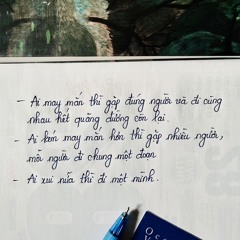 - Ai may mắn thì gặp đúng người và đi cùng
nhau hết quãng đường còn lại.
- Ai kém may mắn hơn thì gặp nhiều người,
mỗi người đi chung một đoạn
- Ai xui nữa thì đi một mình.